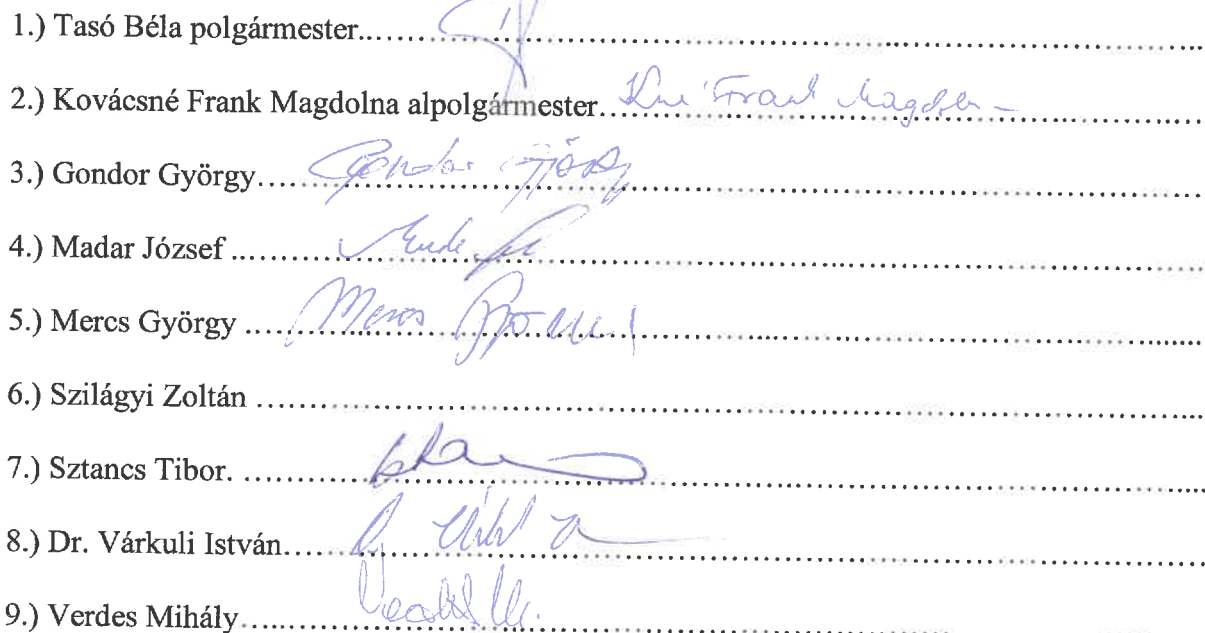 1.) Tasó Béla polgármester..........
2.) Kovácsné Frank Magdolna alpolgármester.......... Kné Frank Magdolna
3.) Gondor György.......... Gondor György
4.) Madar József ..........
5.) Mercs György .......... Mercs György
6.) Szilágyi Zoltán ..........
7.) Sztancs Tibor. ..........
8.) Dr. Várkuli István..........
9.) Verdes Mihály..........